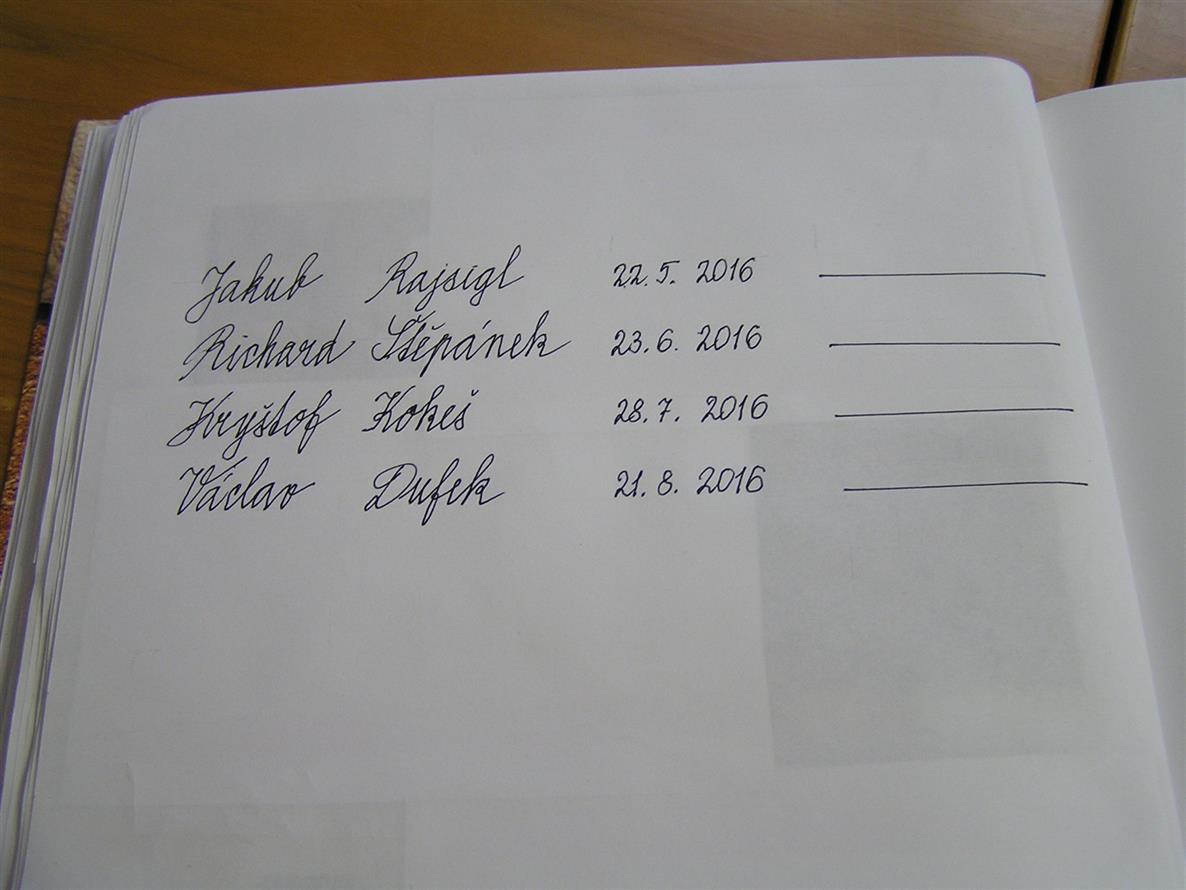 Jakub Rajsigl 22. 5. 2016
Richard Štěpánek 23. 6. 2016
Kryštof Kokeš 28. 7. 2016
Václav Dufek 21. 8. 2016